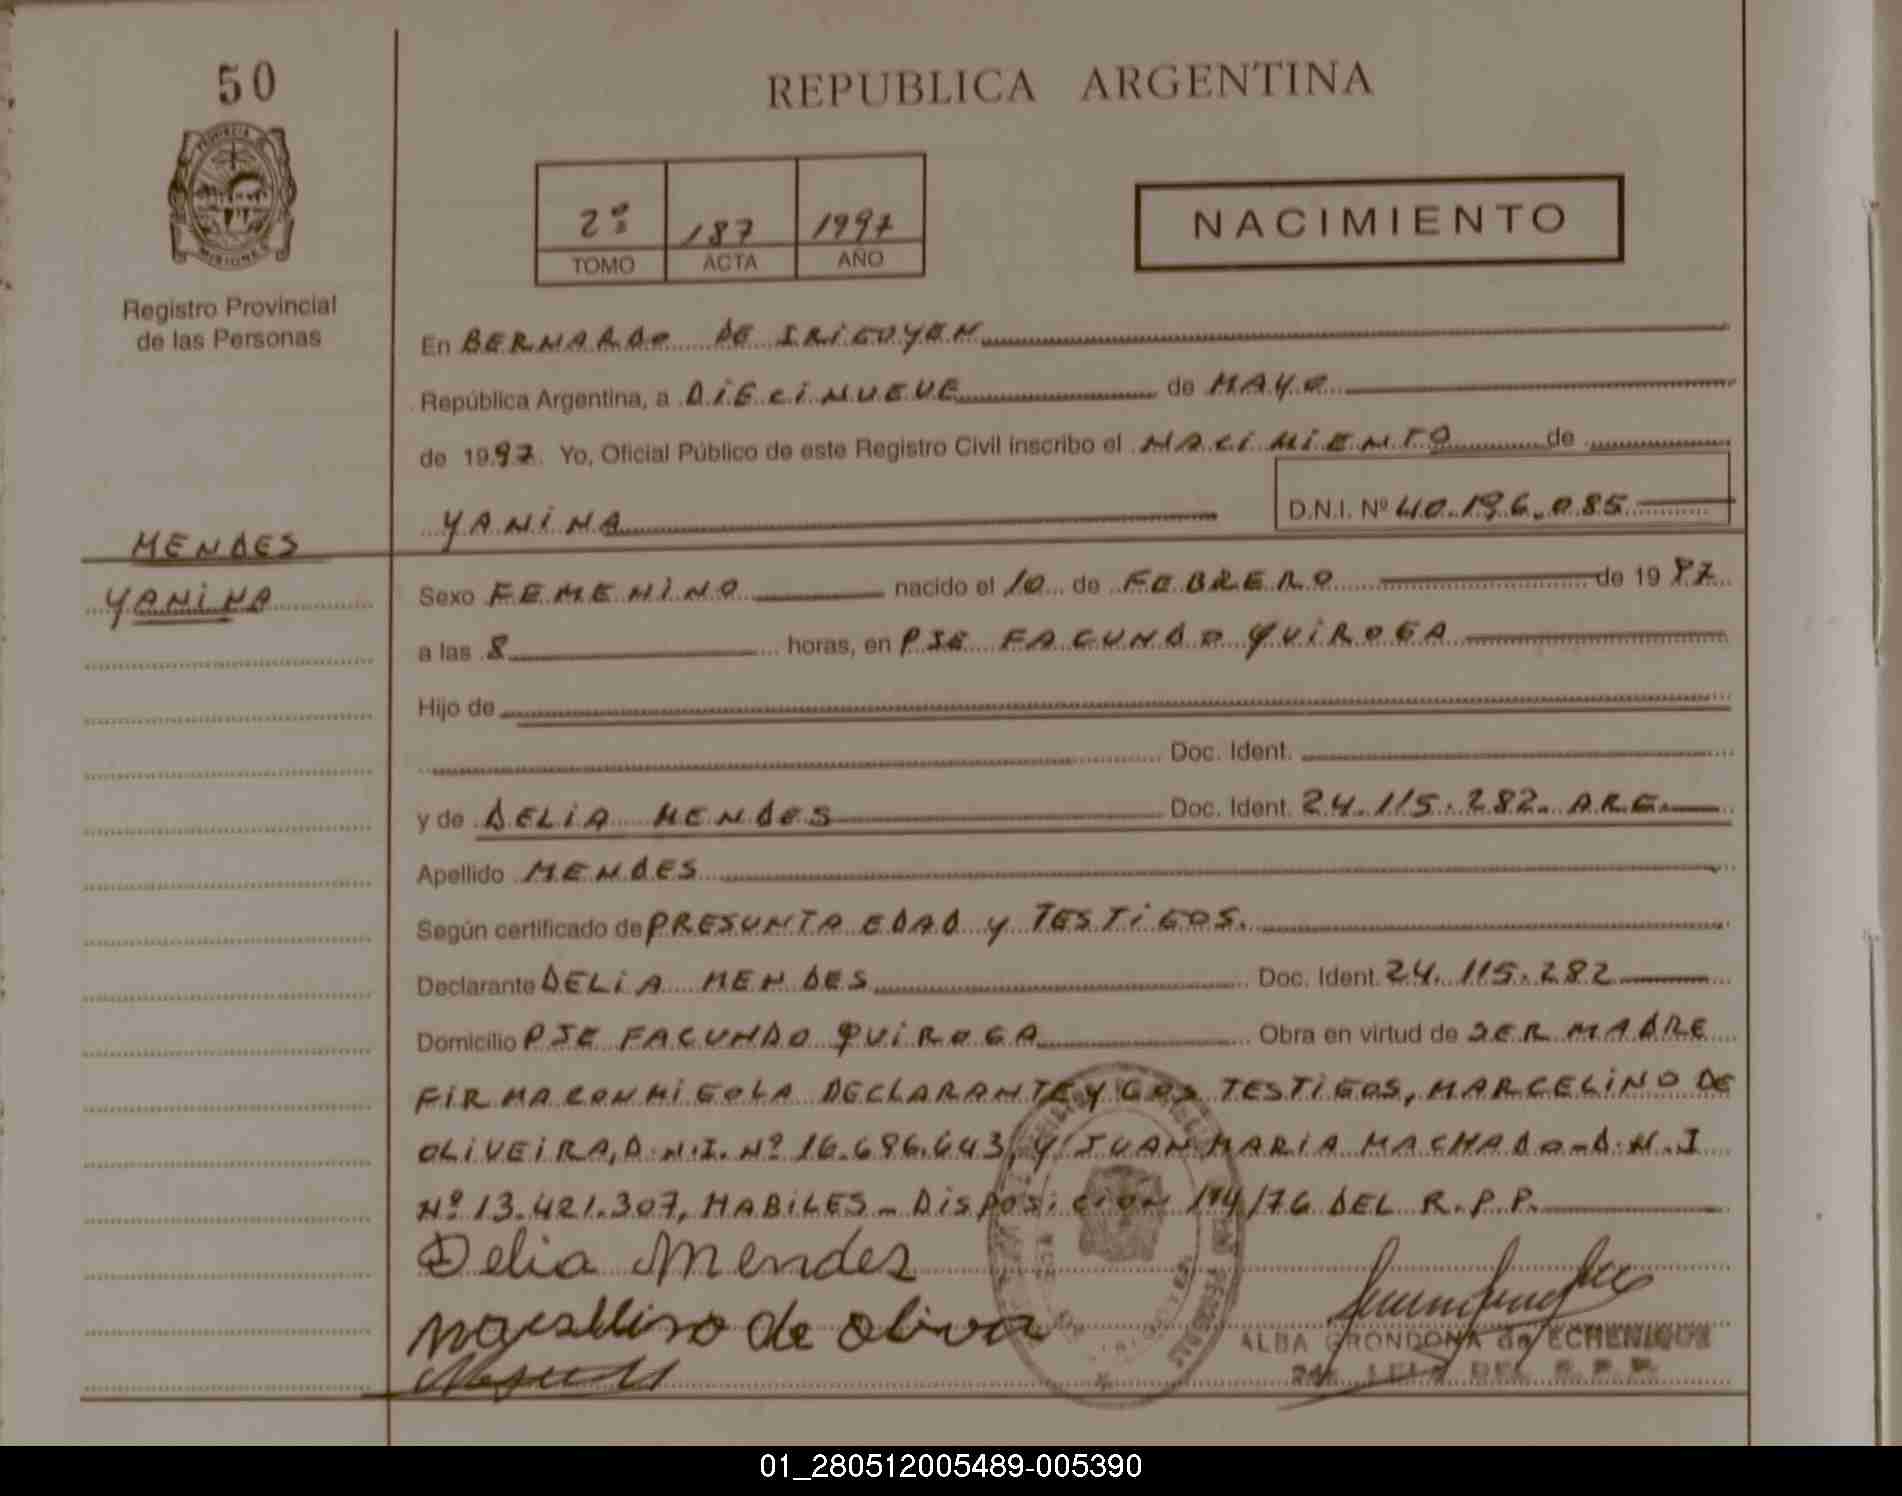 50
REPUBLICA ARGENTINA
PROVINCIA
MISIONES
Registro Provincial
de las Personas
2º 187 1997
TOMO ACTA AÑO
NACIMIENTO
En BERNARDO DE IRIGOYEN
República Argentina, a DIECINUEVE de MAYO
de 1997. Yo, Oficial Público de este Registro Civil inscribo el NACIMIENTO de
YANINA D.N.I. Nº 40.196.085
MENDES
YANINA
Sexo FEMENINO nacido el 10 de FEBRERO de 19
a las 8 horas, en PJE FACUNDO QUIROGA
Hijo de
Doc. Ident.
y de DELIA MENDES Doc. Ident. 24.115.282. ARG.
Apellido MENDES
Según certificado de PRESUNTA EDAD y TESTIGOS.
Declarante DELIA MENDES Doc. Ident. 24.115.282
Domicilio PJE FACUNDO QUIROGA Obra en virtud de SER MADRE
FIRMA CONMIGO LA DECLARANTE Y LOS TESTIGOS, MARCELINO DE
OLIVEIRA, D.N.I. Nº 16.696.643, Y JUAN MARIA MACHADO - D.N.I
Nº 13.421.307, HABILES - DISPOSICION /76 DEL R.P.P.
Delia Mendes
de oliva
ALBA GRONDONA de ECHENIQUE
DEL R.P.P.
01_280512005489-005390